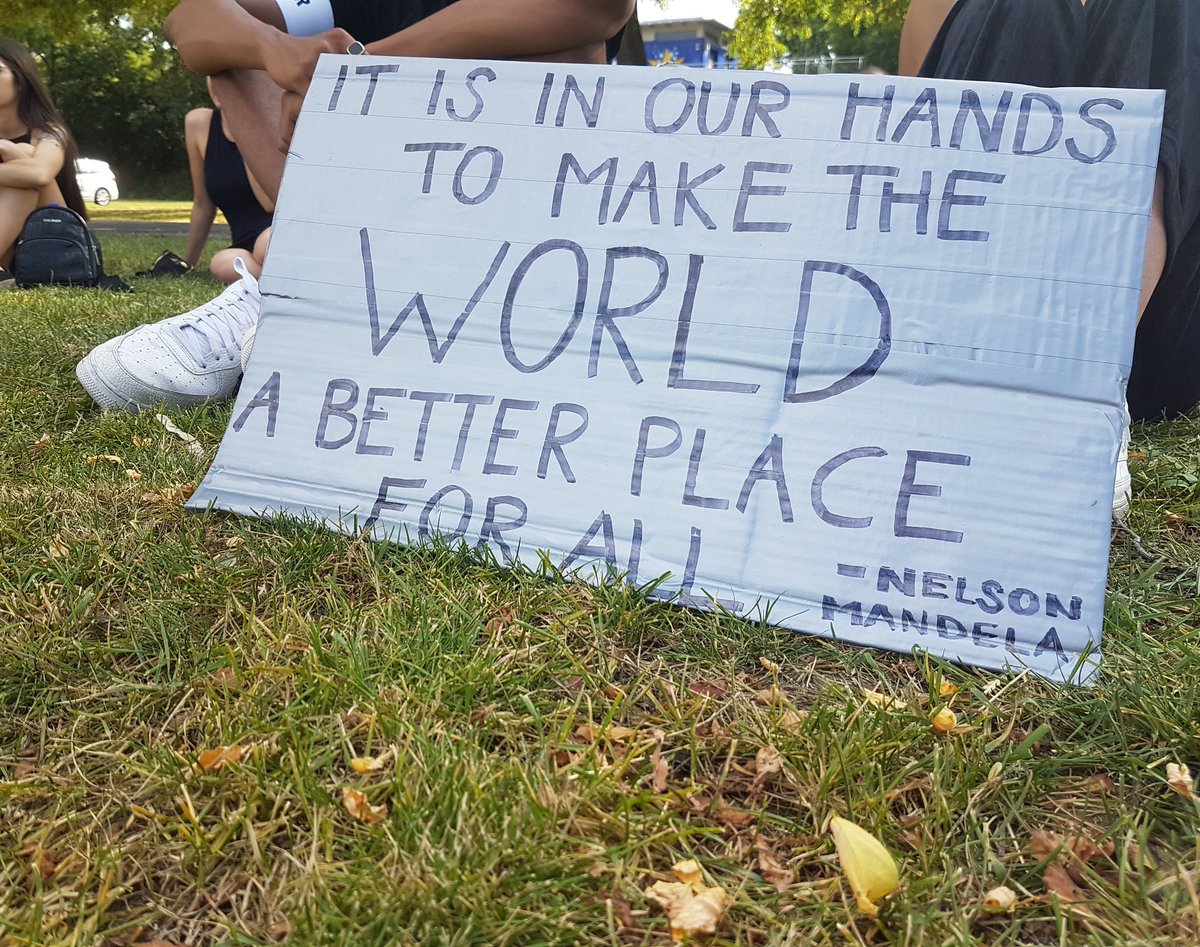 IT IS IN OUR HANDS
TO MAKE THE
WORLD
A BETTER PLACE
FOR ALL
- NELSON
MANDELA